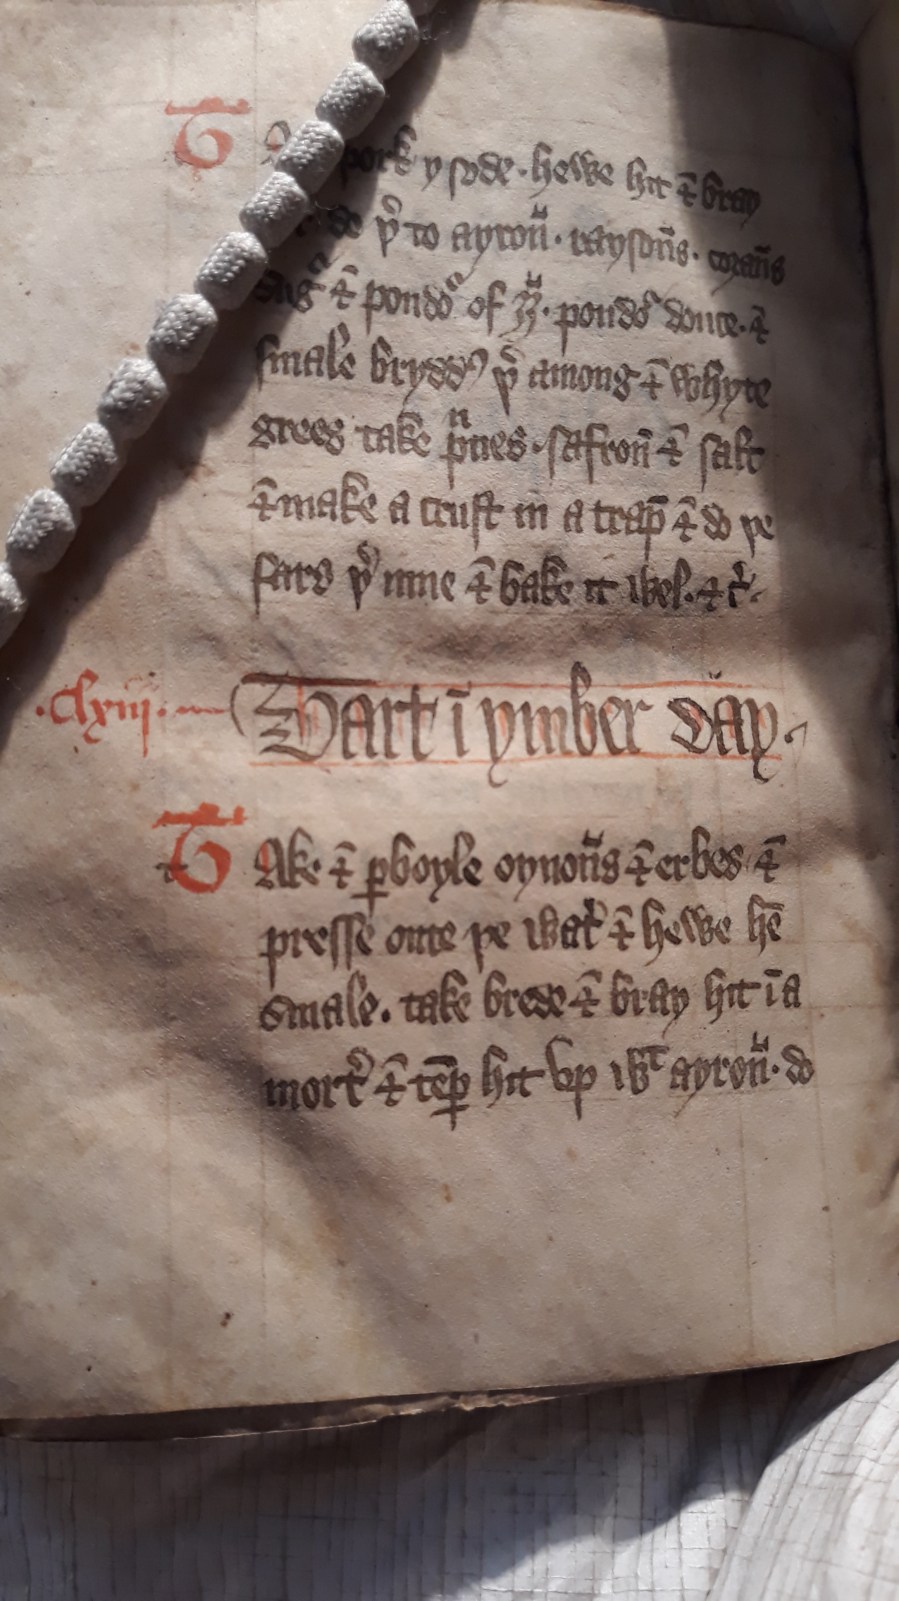 T A pork y sode. hewe hit & bray
þ̉ to ayron̄. raysōns. corāns
sug̉ & poudo᷑ of gȳ. poudo᷑ douce. &
smale brydd᷑ þ̉ among & whyte
grees take pͫnes. safron̄ & salt
& make a crust in a trap̄ & do þe
fars þ̉ inne & bake it wel. & c̉.
.clxiij. Tart ī ymber day.
T Ake & ꝑboyle oynōns & erbes &
presse oute þe wat̉ & hewe hē
smale. take brede & bray hit ī a
mort̉ & tēꝑ hit vp wͭ ayron̄. do